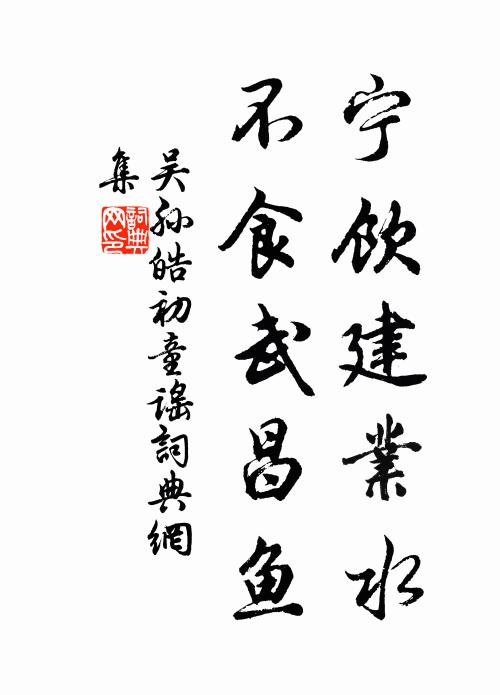 宁饮建业水
不食武昌鱼
吴孙皓初童谣詞典網
集
詞典
网印